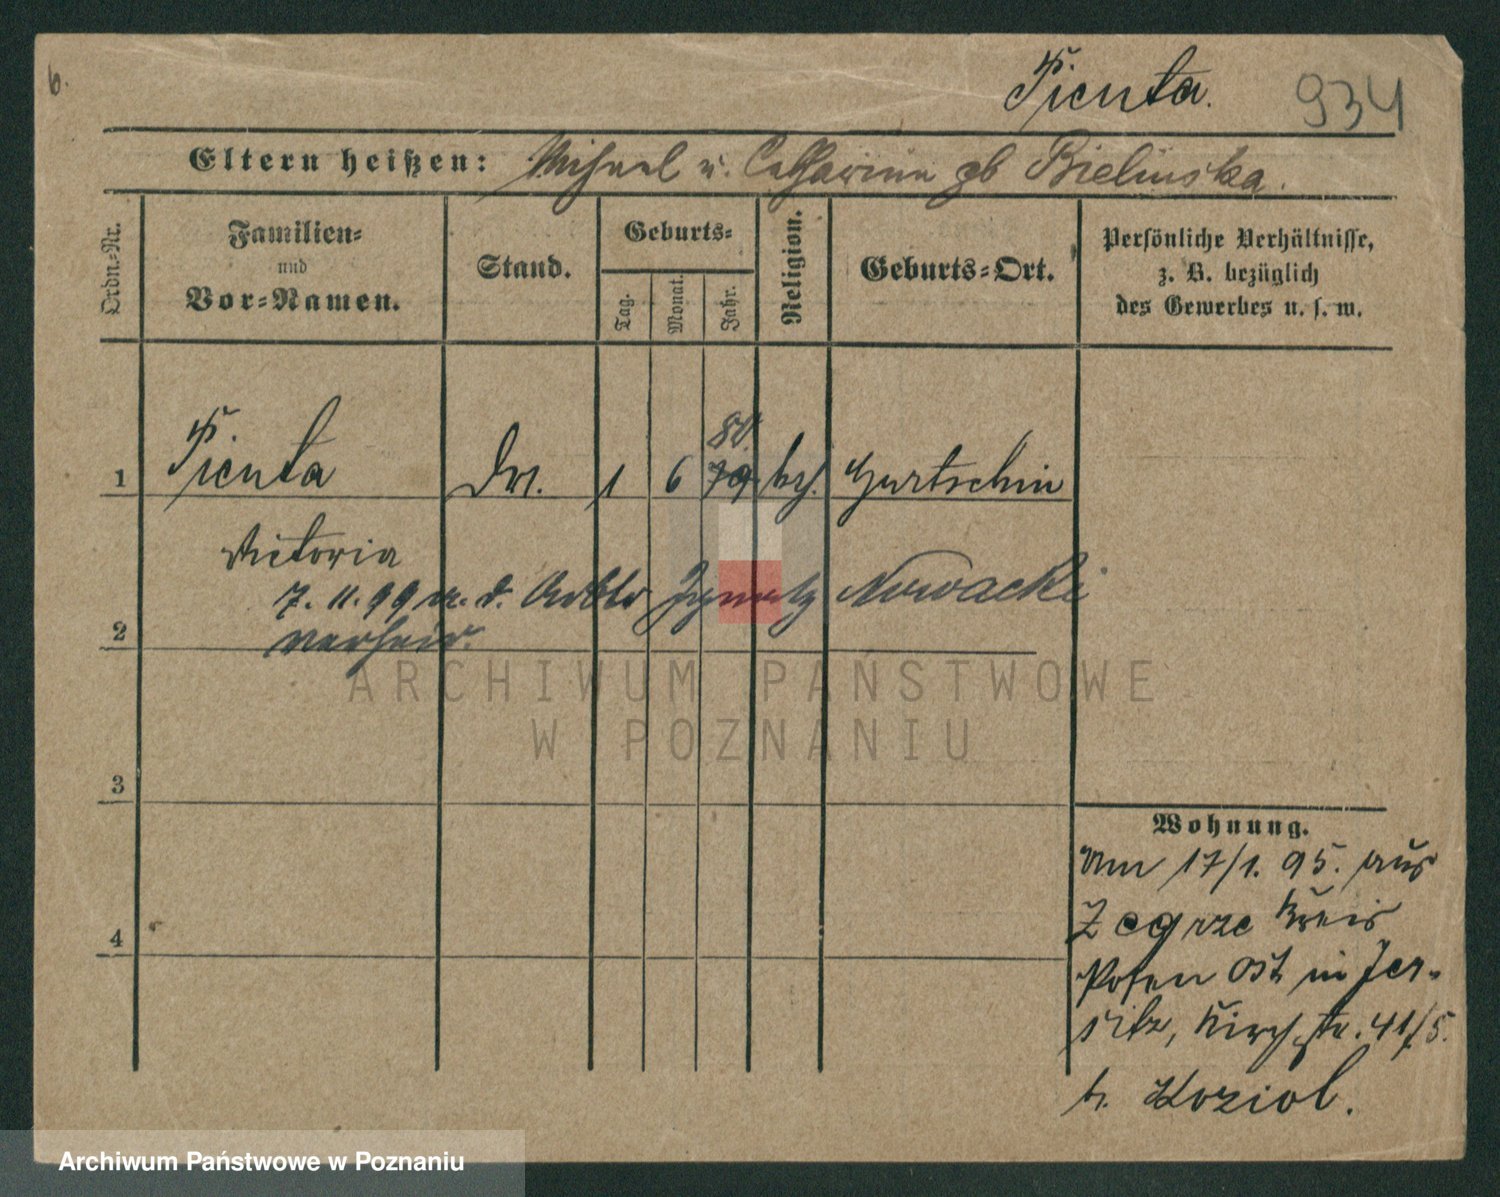 6.
Pienta.
934
Eltern heißen: Michael u. Catharina gb Bielinska.
Ordn.-Nr.
Familien-
und
Vor-Namen.
Stand.
Geburts-
Tag.
Monat.
Jahr.
Religion.
Geburts-Ort.
Persönliche Verhältnisse,
z. B. bezüglich
des Gewerbes u. s. w.
80.
1 Pienta 1 6 79 Gurtschin
Victoria
7. 11. 99 m. d. Arbtr Ignatz Nowacki
2 verheir.
3
4
Wohnung.
Am 17/1. 95. aus
Zegrze Kreis
Posen Ost in Jer-
sitz, Kirchstr. 41/5.
b. Koziol.
ARCHIWUM PAŃSTWOWE
W POZNANIU
Archiwum Państwowe w Poznaniu